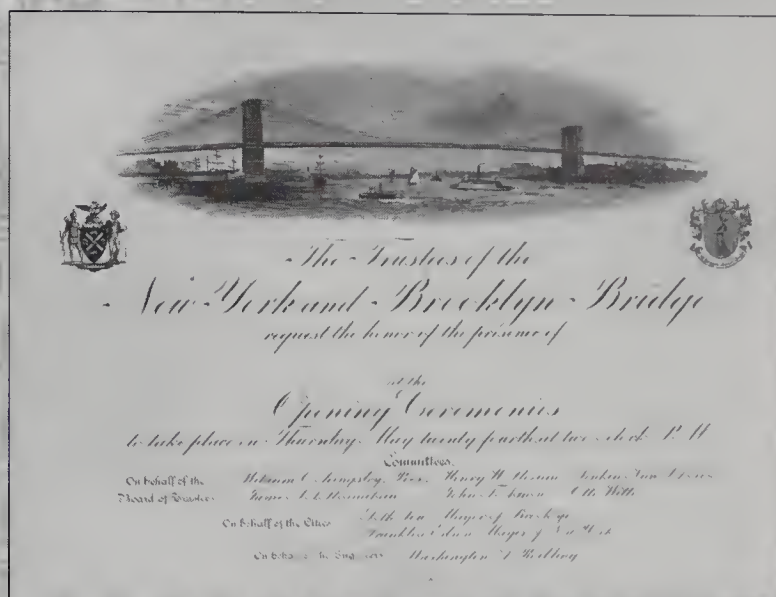 The Trustees of the
New York and Brooklyn Bridge
request the honor of the presence of
at the
Opening Ceremonies
to take place on Thursday, May twenty fourth at two o'clock P. M
Committees.
On behalf of the
Board of Trustees
William C. Kingsley, Pres. Henry W. Slocum
James S. T. Stranahan Otto Witte
On behalf of the Cities
Seth Low Mayor of Brooklyn
Franklin Edson Mayor of New York
On behalf of the Engineers Washington A Roebling